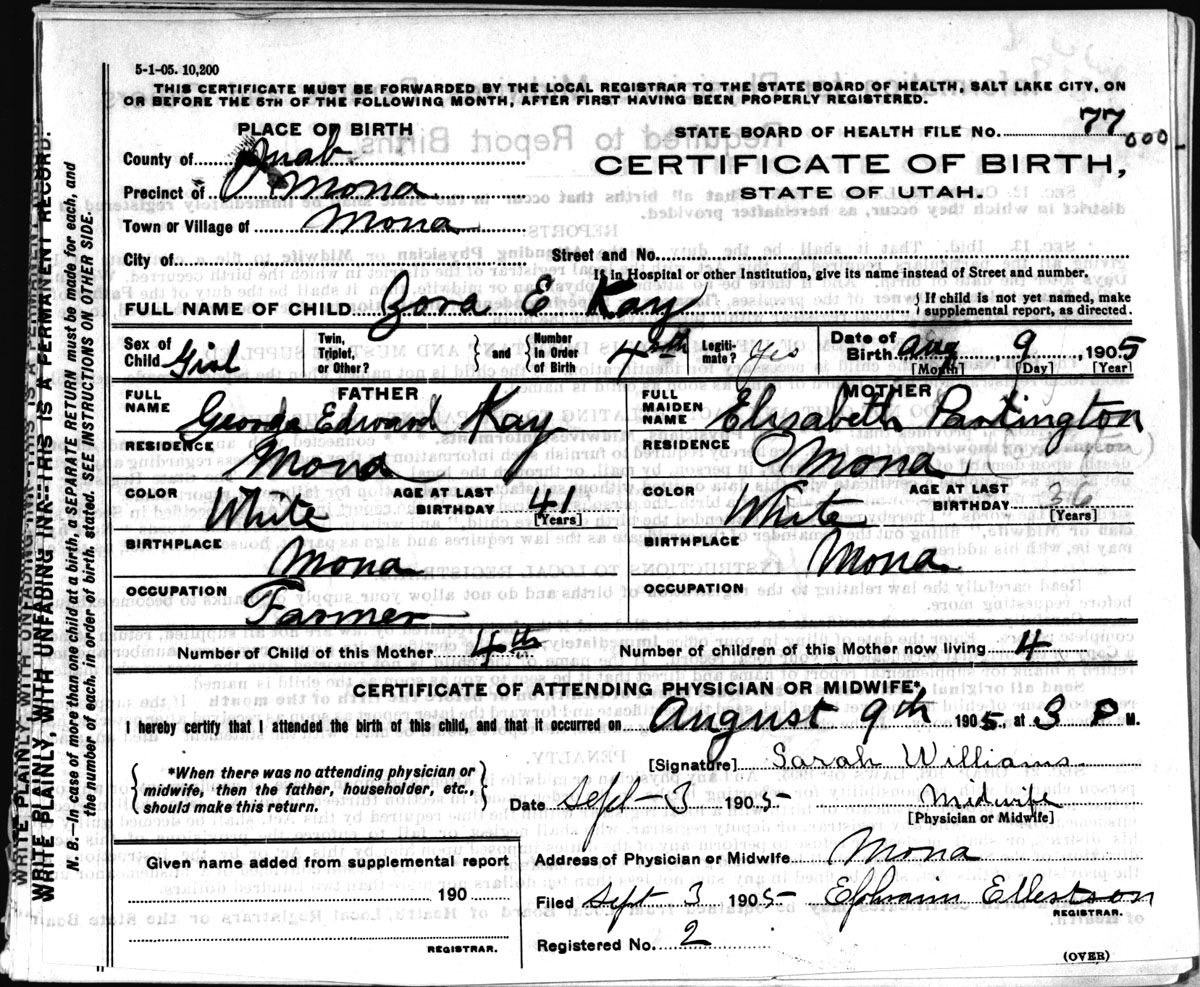 5-1-05. 10,200
THIS CERTIFICATE MUST BE FORWARDED BY THE LOCAL REGISTRAR TO THE STATE BOARD OF HEALTH, SALT LAKE CITY, ON
OR BEFORE THE 5TH OF THE FOLLOWING MONTH, AFTER FIRST HAVING BEEN PROPERLY REGISTERED.
PLACE OF BIRTH
STATE BOARD OF HEALTH FILE No. 77
000
County of Juab
CERTIFICATE OF BIRTH,
Precinct of Mona
STATE OF UTAH.
Town or Village of Mona
City of
Street and No.
If in Hospital or other Institution, give its name instead of Street and number.
FULL NAME OF CHILD Zora E Kay
{ If child is not yet named, make
supplemental report, as directed.
Sex of Child Girl
Twin, Triplet, or Other? { and } Number In Order of Birth 4th
Legitimate? Yes
Date of Birth Aug 9, 1905
[Month] [Day] [Year]
FATHER
MOTHER
FULL NAME George Edward Kay
FULL MAIDEN NAME Elizabeth Partington
RESIDENCE Mona
RESIDENCE Mona
COLOR White AGE AT LAST BIRTHDAY 41 [Years]
COLOR White AGE AT LAST BIRTHDAY 36 [Years]
BIRTHPLACE Mona
BIRTHPLACE Mona
OCCUPATION Farmer
OCCUPATION
Number of Child of this Mother 4th
Number of children of this Mother now living 4
CERTIFICATE OF ATTENDING PHYSICIAN OR MIDWIFE*
I hereby certify that I attended the birth of this child, and that it occurred on August 9th 1905, at 3 P M.
[Signature] Sarah Williams
{ *When there was no attending physician or
midwife, then the father, householder, etc.,
should make this return. }
Date Sept-3 1905
Midwife
[Physician or Midwife]
Given name added from supplemental report
190
REGISTRAR.
Address of Physician or Midwife Mona
Filed Sept 3 1905 Ephraim Ellestson
REGISTRAR.
Registered No. 2
(OVER)
WRITE PLAINLY, WITH UNFADING INK--THIS IS A PERMANENT RECORD.
N. B.—In case of more than one child at a birth, a SEPARATE RETURN must be made for each, and
the number of each, in order of birth, stated. SEE INSTRUCTIONS ON OTHER SIDE.